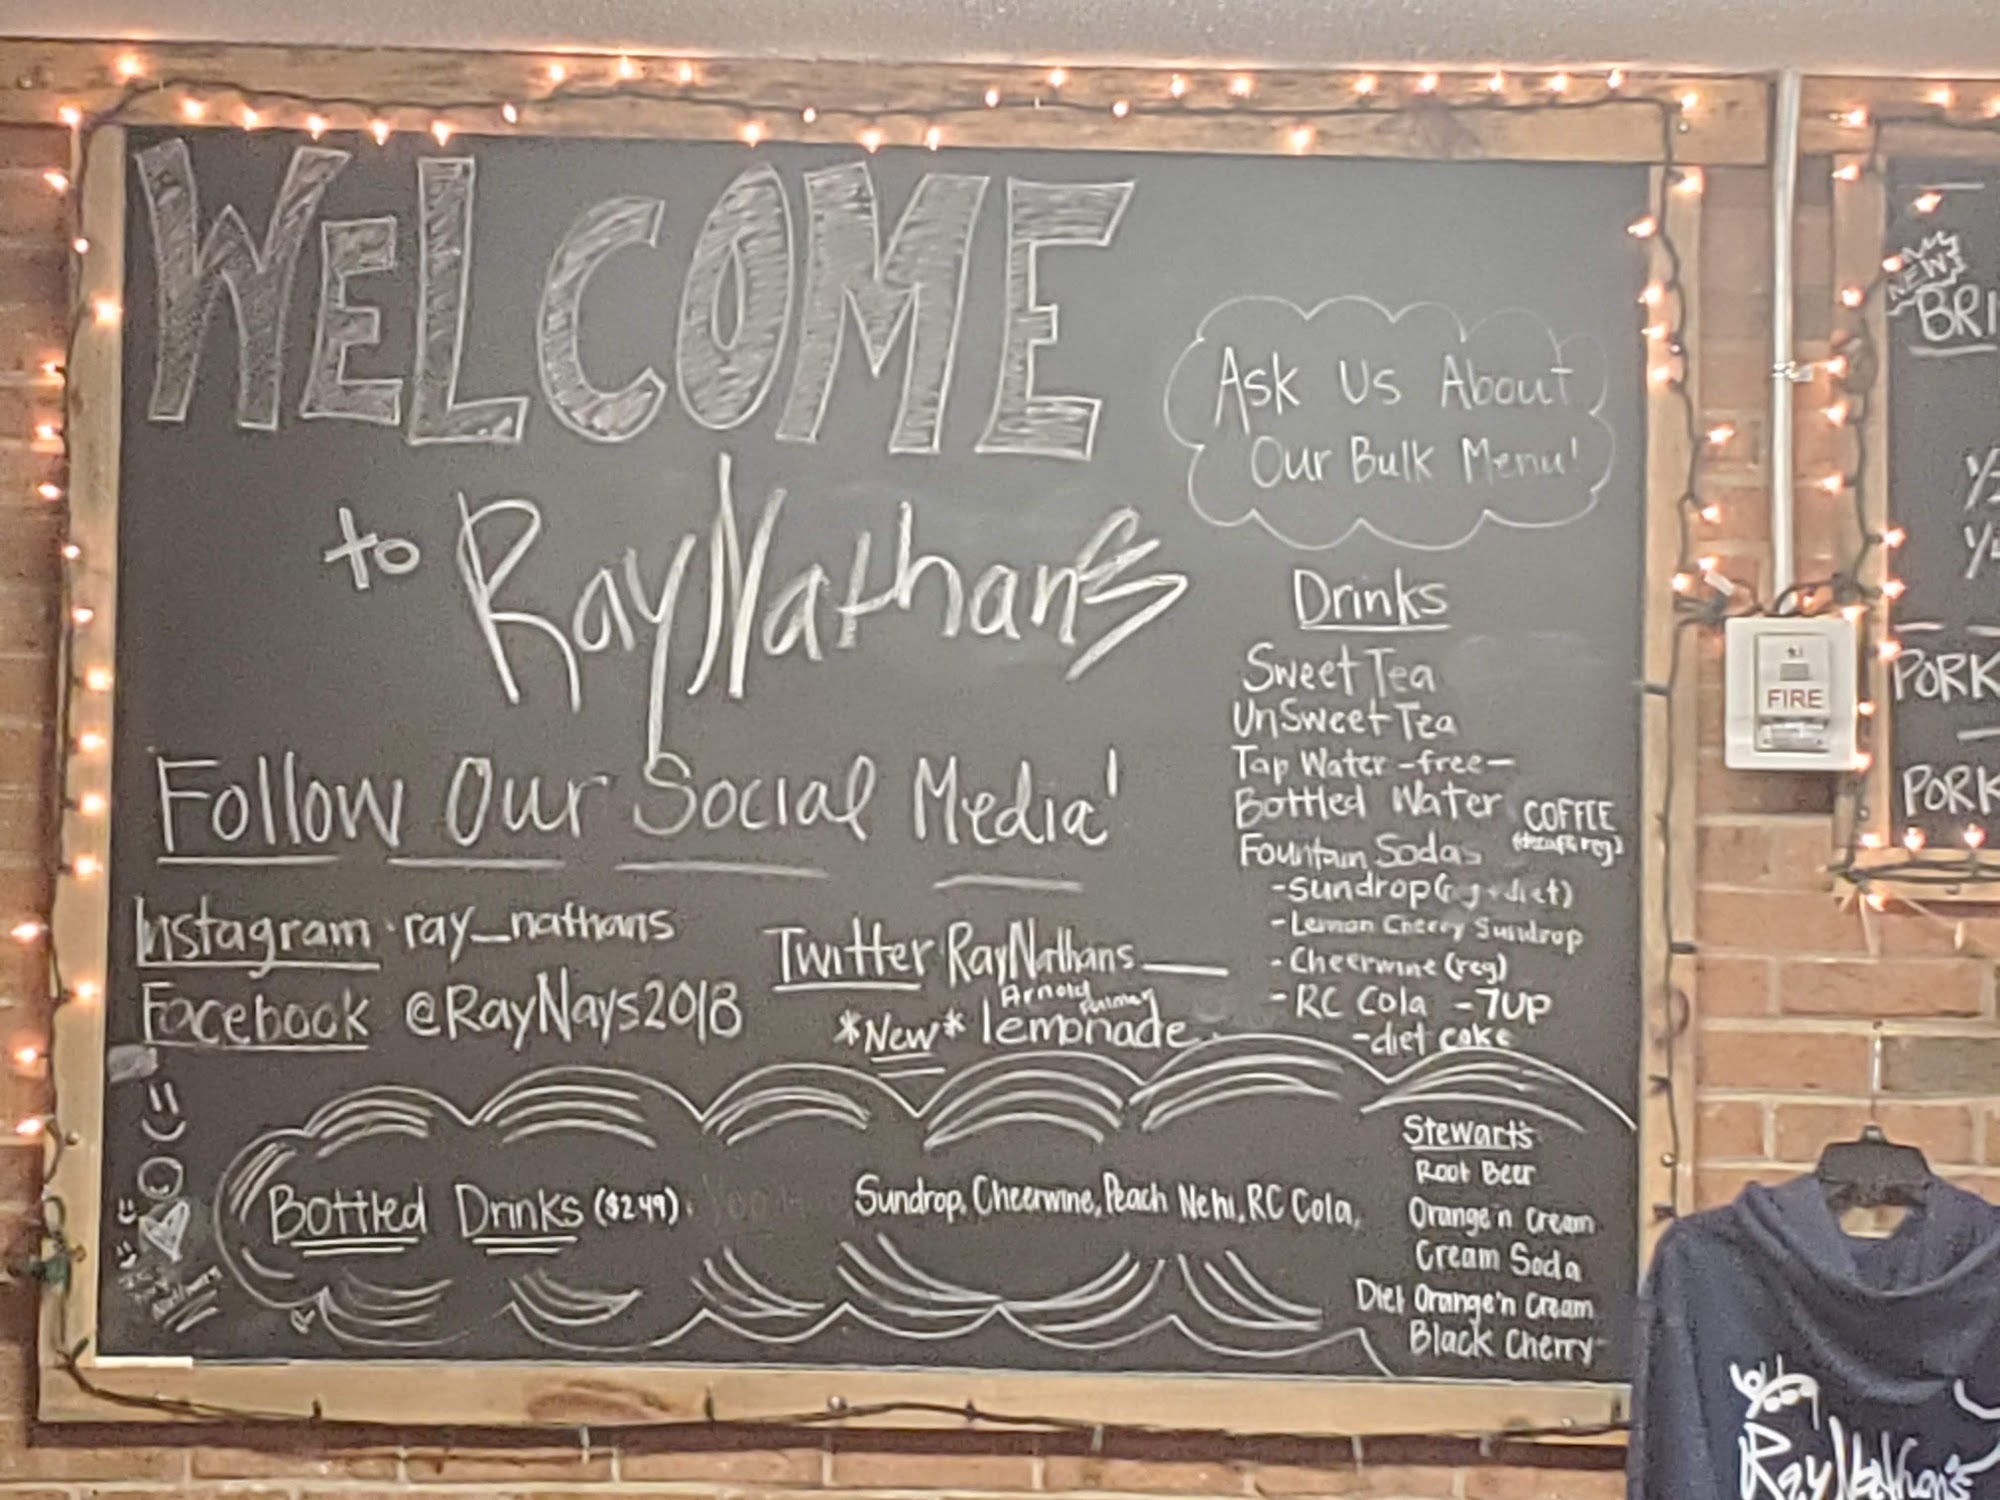 WELCOME
to RayNathan's
Ask Us About
Our Bulk Menu!
Follow Our Social Media!
Instagram · ray_nathans
Facebook @RayNays2018
Twitter RayNathans_
*New* lemonade
Arnold Palmer
Drinks
Sweet Tea
UnSweet Tea
Tap Water -free-
Bottled Water
COFFEE
(decaf & reg)
Fountain Sodas
-Sundrop (reg + diet)
-Lemon Cherry Sundrop
-Cheerwine (reg)
-RC Cola -7UP
-diet coke
Bottled Drinks ($2.49)
Sundrop, Cheerwine, Peach Nehi, RC Cola,
Stewart's
Root Beer
Orange'n Cream
Cream Soda
Diet Orange'n Cream
Black Cherry
FIRE
NEW
BRI
1/
1/
PORK
PORK
RayNathan's